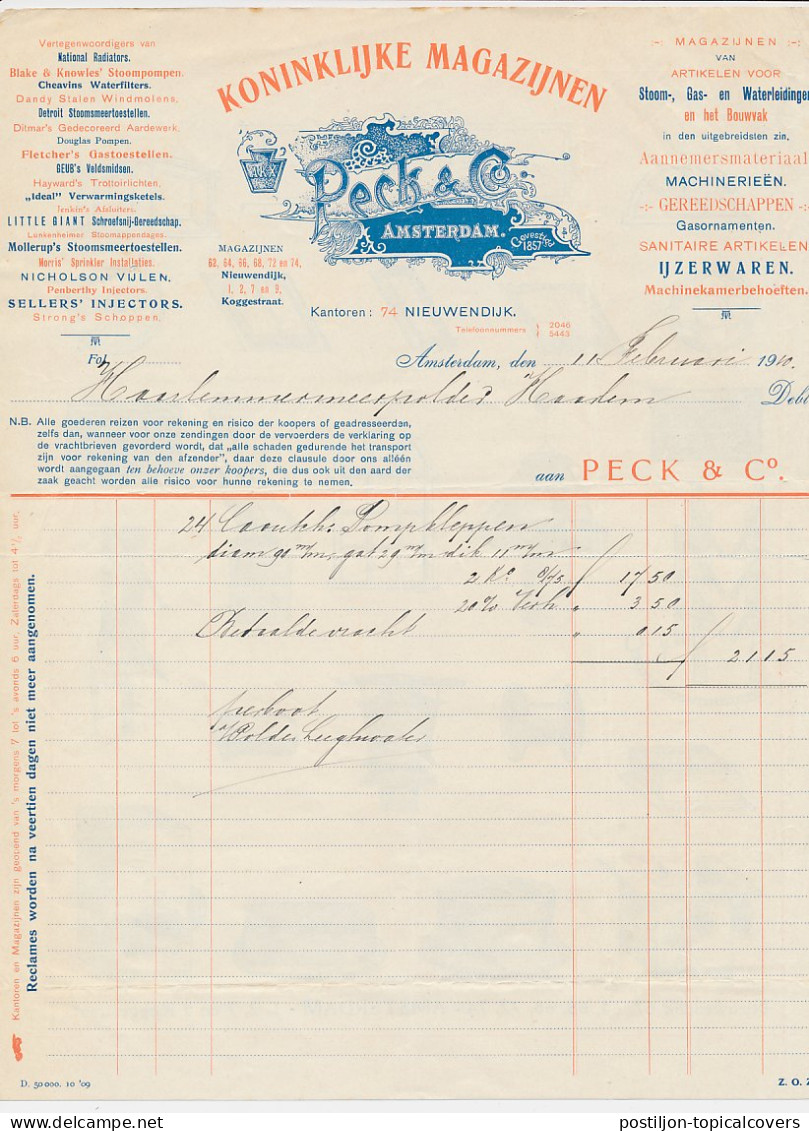 Vertegenwoordigers van
National Radiators.
Blake & Knowles' Stoompompen.
Cheavins Waterfilters.
Dandy Stalen Windmolens.
Detroit Stoomsmeertoestellen.
Ditmar's Gedecoreerd Aardewerk.
Douglas Pompen.
Fletcher's Gastoestellen.
GEUB's Veldsmidsen.
Hayward's Trottoirlichten.
„Ideal" Verwarmingsketels.
Jenkin's Afsluiters.
LITTLE GIANT Schroefsnij-Gereedschap.
Lunkenheimer Stoomappendages.
Mollerup's Stoomsmeertoestellen.
Norris' Sprinkler Installaties.
NICHOLSON VIJLEN.
Penberthy Injectors.
SELLERS' INJECTORS.
Strong's Schoppen.
KONINKLIJKE MAGAZIJNEN
Peck & Co.
AMSTERDAM.
Gevestigd 1857
MAGAZIJNEN
63, 64, 66, 68, 72 en 74,
Nieuwendijk,
1, 2, 7 en 9,
Koggestraat.
Kantoren: 74 NIEUWENDIJK.
Telefoonnummers 2046
5443
MAGAZIJNEN
VAN
ARTIKELEN VOOR
Stoom-, Gas- en Waterleidingen
en het Bouwvak
in den uitgebreidsten zin,
Aannemersmateriaal
MACHINERIEËN.
-:- GEREEDSCHAPPEN -:-
Gasornamenten.
SANITAIRE ARTIKELEN
IJZERWAREN.
Machinekamerbehoeften.
Fol.
Amsterdam, den 11 Februari 1910.
Haarlemmermeerpolder Haarlem Deb
N.B. Alle goederen reizen voor rekening en risico der koopers of geadresseerden,
zelfs dan, wanneer voor onze zendingen door de vervoerders de verklaring op
de vrachtbrieven gevorderd wordt, dat „alle schaden gedurende het transport
zijn voor rekening van den afzender", daar deze clausule door ons alléén
wordt aangegaan ten behoeve onzer koopers, die dus ook uit den aard der
zaak geacht worden alle risico voor hunne rekening te nemen.
aan PECK & Co.
24 Caoutch. Pompkleppen
diam 90 m/m, gat 29 m/m dik 11 m/m
2 Ko 8/75 f 17 50
20% Verh „ 3 50
Betaalde vracht „ 0 15
f 21 15
per boot
Polder Leeghwater
Kantoren en Magazijnen zijn geopend van 's morgens 7 tot 's avonds 6 uur, Zaterdags tot 4½ uur.
Reclames worden na veertien dagen niet meer aangenomen.
D. 50000. 10 '09
Z. O. Z
postiljon-topicalcovers